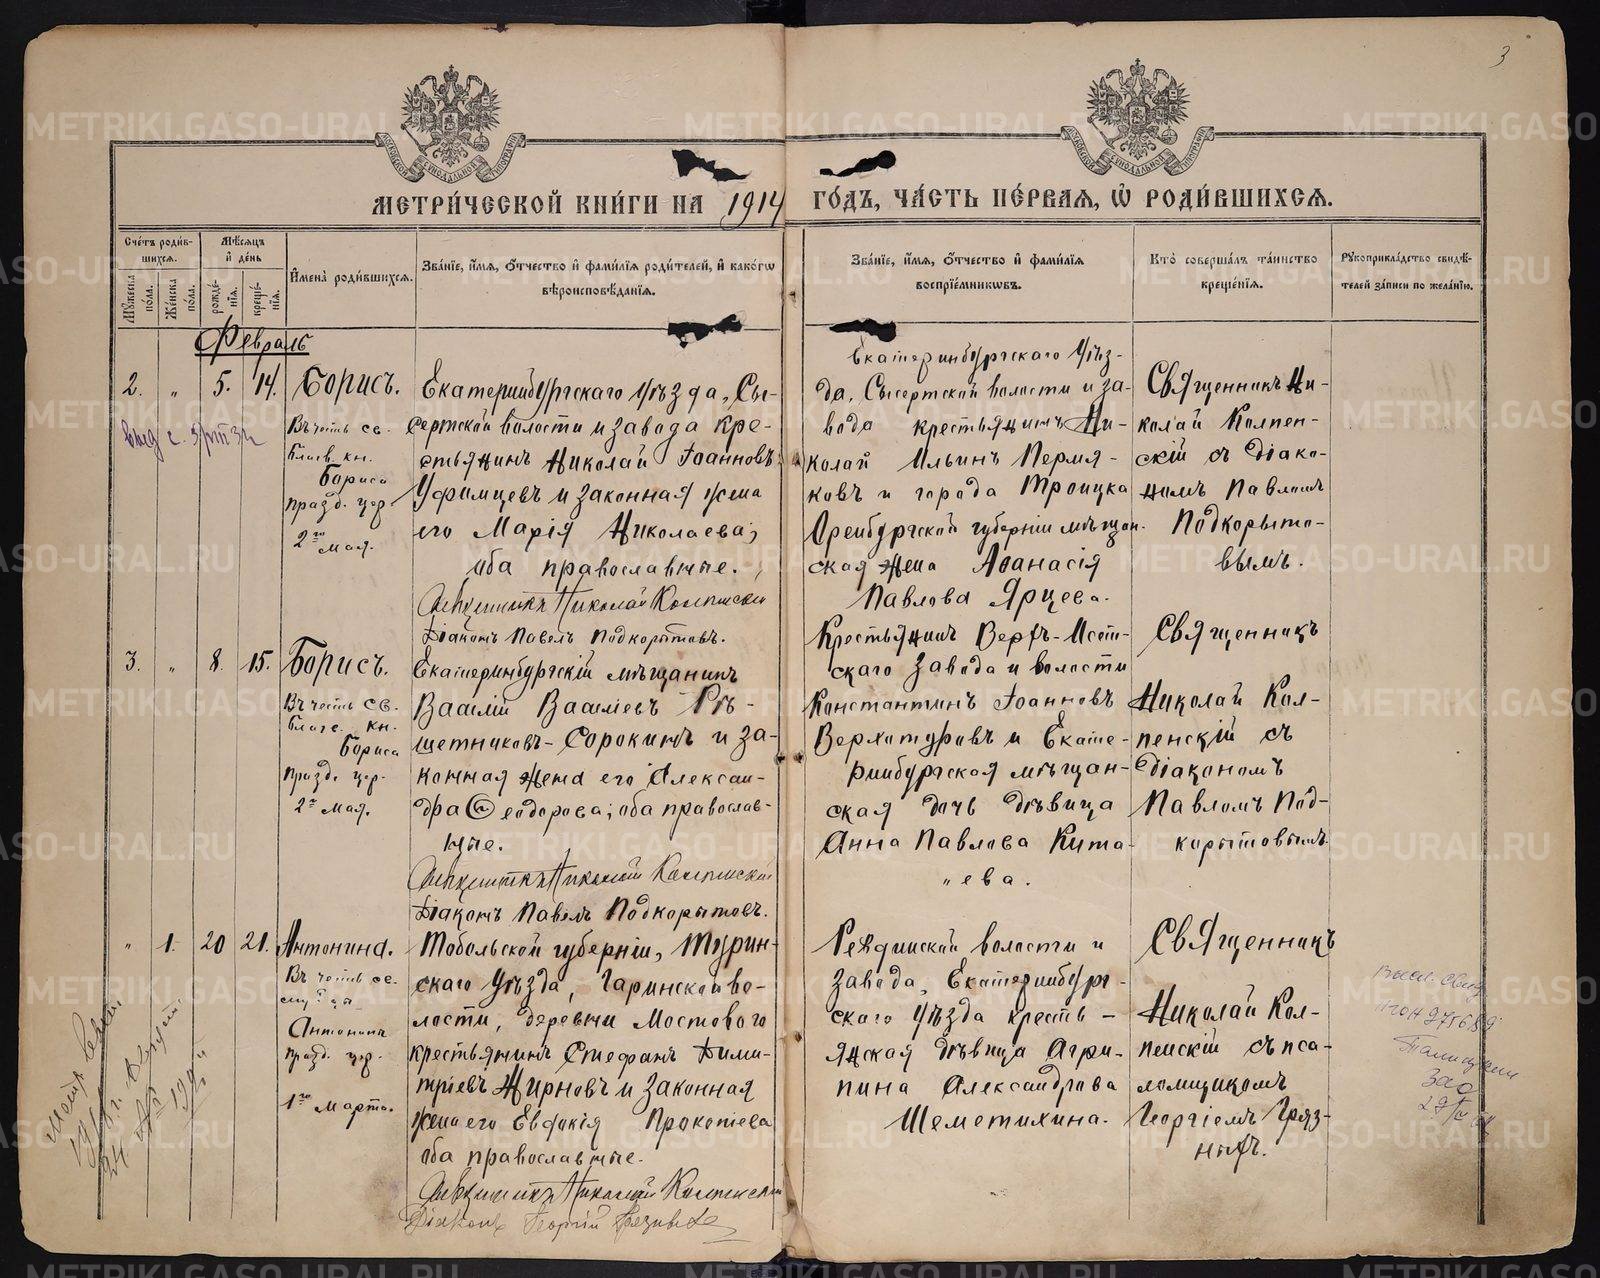 3
МОСКОВСКОЙ СУНОДАЛЬНОЙ ТИПОГРАФІИ
МОСКОВСКОЙ СУНОДАЛЬНОЙ ТИПОГРАФІИ
МЕТРИ́ЧЕСКОЙ КНИ́ГИ НА 1914 ГО́ДЪ, ЧА́СТЬ ПЕ́РВАѦ, Ѡ҆ РОДИ́ВШИХСѦ.
Сче́тъ роди́в-
шихсѧ.
Мꙋ́жеска по́ла.
Же́нска по́ла.
Мѣ́сѧцъ
и҆ де́нь
рожде́-
нїѧ.
креще́-
нїѧ.
И҆мена̀ роди́вшихсѧ.
Зва́нїе, и҆́мѧ, ѻ҆́тчество и҆ фами́лїѧ роди́телей, и҆ како́гѡ
вѣроисповѣ́данїѧ.
Зва́нїе, и҆́мѧ, ѻ҆́тчество и҆ фами́лїѧ
воспрїе́мникѡвъ.
Кто̀ соверша́лъ та́инство
креще́нїѧ.
Рꙋкоприкла́дство свидѣ́-
телей за́писи по жела́нїю.
Февраль
2. " 5. 14. Борисъ.
Въ честь св.
Благв. кн.
Бориса
празд. цер.
2го мая.
Екатеринбургскаго уѣзда, Сы-
сертской волости и завода кре-
стьянинъ Николай Іоанновъ
Уфимцевъ и законная жена
его Марія Николаева;
оба православные.
Священникъ Николай Колпенскій
Діаконъ Павелъ Подкорытовъ.
Екатеринбургскаго Уѣз-
да, Сысертской волости и за-
вода крестьянинъ Ни-
колай Ильинъ Пермя-
ковъ и города Троицка
Оренбургской губерніи мѣщан-
ская жена Аѳанасія
Павлова Ярцева.
Священникъ Ни-
колай Колпен-
скій съ діако-
номъ Павломъ
Подкорыто-
вымъ.
3. " 8. 15. Борисъ.
Въ честь св.
благв. кн.
Бориса
празд. цер.
2го мая.
Екатеринбургскій мѣщанинъ
Василій Васильевъ Рѣ-
шетниковъ-Сорокинъ и за-
конная жена его Алексан-
дра Ѳеодорова; оба православ-
ные.
Священникъ Николай Колпенскій
Діаконъ Павелъ Подкорытовъ.
Крестьянинъ Верхъ-Исет-
скаго завода и волости
Константинъ Іоанновъ
Верхотуровъ и Екате-
ринбургская мѣщан-
ская дочь дѣвица
Анна Павлова Кита-
"ева.
Священникъ
Николай Кол-
пенскій съ
діакономъ
Павломъ Под-
корытовымъ.
" 1. 20 21. Антонина.
Въ честь св.
Антонины
празд. цер.
1го Марта.
Тобольской губерніи, Турин-
скаго Уѣзда, Гаринской во-
лости, деревни Мостового
крестьянинъ Стефанъ Дими-
тріевъ Жирновъ и законная
жена его Евдокія Прокопіева
оба православные.
Священникъ Николай Колпенскій
Діаконъ Георгій
Ревдинской волости и
завода, Екатеринбург-
скаго Уѣзда кресть-
янская дѣвица Агри-
пина Александрова
Шеметихина.
Священникъ
Николай Кол-
пенскій съ пса-
ломщикомъ
Георгіемъ Гряз-
ныхъ.